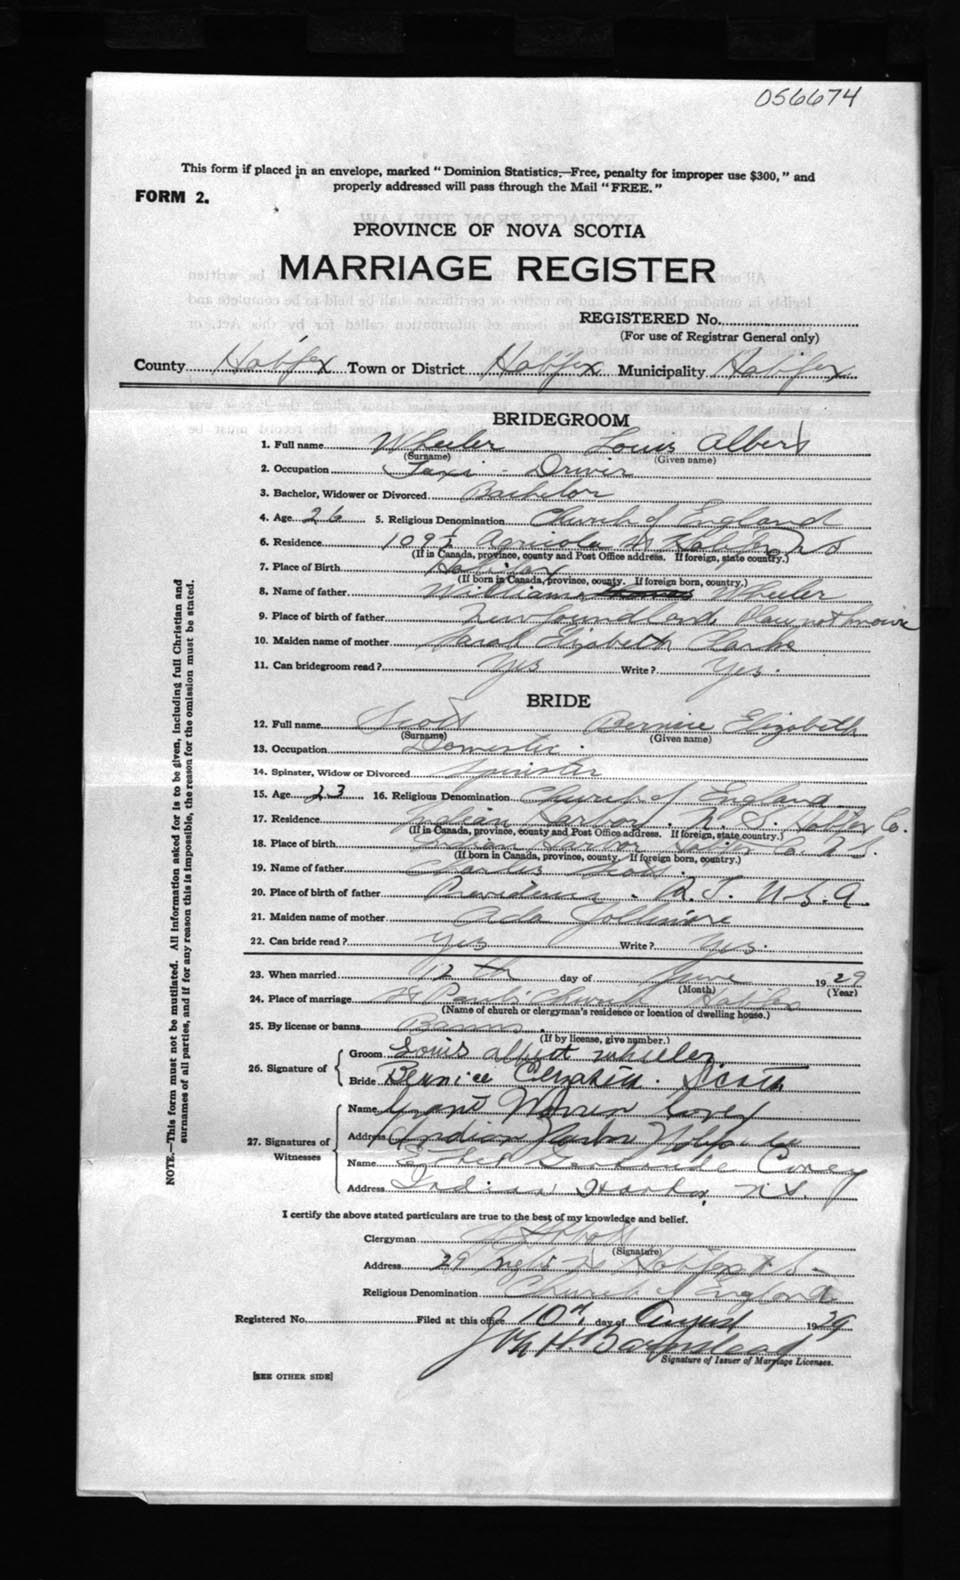 056674
This form if placed in an envelope, marked "Dominion Statistics,—Free, penalty for improper use $300," and
properly addressed will pass through the Mail "FREE."
FORM 2.
PROVINCE OF NOVA SCOTIA
MARRIAGE REGISTER
REGISTERED No.
(For use of Registrar General only)
County Halifax Town or District Halifax Municipality Halifax
BRIDEGROOM
1. Full name Wheeler Louis Albert
(Surname) (Given name)
2. Occupation Taxi - Driver
3. Bachelor, Widower or Divorced Bachelor
4. Age 26 5. Religious Denomination Church of England
6. Residence 109½ Agricola St Halifax N S
(If in Canada, province, county and Post Office address. If foreign, state country.)
7. Place of Birth Halifax
(If born in Canada, province, county. If foreign born, country.)
8. Name of father William Wheeler
9. Place of birth of father Newfoundland Place not known
10. Maiden name of mother Sarah Elizabeth Clarke
11. Can bridegroom read? Yes Write? Yes.
BRIDE
12. Full name Scott Bernice Elizabeth
(Surname) (Given name)
13. Occupation Domestic.
14. Spinster, Widow or Divorced Spinster
15. Age 23 16. Religious Denomination Church of England
17. Residence Indian Harbor. N. S. Halifax Co.
(If in Canada, province, county and Post Office address. If foreign, state country.)
18. Place of birth Indian Harbor Halifax Co. N S.
(If born in Canada, province, county. If foreign born, country.)
19. Name of father Charles Scott.
20. Place of birth of father Providence. R. I. U. S. A.
21. Maiden name of mother Ada Jollimore
22. Can bride read? Yes Write? Yes.
23. When married 12th day of June 1929
(Month) (Year)
24. Place of marriage St Paul's Church Halifax
(Name of church or clergyman's residence or location of dwelling house.)
25. By license or banns Banns.
(If by license, give number.)
26. Signature of Groom Louis Albert Wheeler
Bride Bernice Elizabeth. Scott
27. Signatures of Witnesses Name Grant Warren Covey
Address Indian Harbor Halifax Co
Name Ethel Gertrude Covey
Address Indian Harbor N S.
I certify the above stated particulars are true to the best of my knowledge and belief.
Clergyman
(Signature)
Address 29 St Halifax N S
Religious Denomination Church of England
Registered No. Filed at this office 10th day of August 1929
H. Barnstead
Signature of Issuer of Marriage Licenses.
[SEE OTHER SIDE]
NOTE.—This form must not be mutilated. All information asked for is to be given, including full Christian and
surnames of all parties, and if for any reason this is impossible, the reason for the omission must be stated.